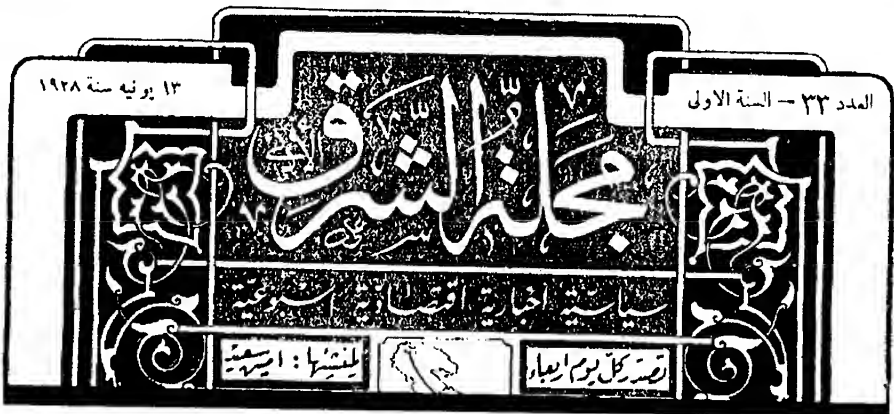 العدد ٣٣ – السنة الاولى
١٣ يونيه سنة ١٩٢٨
مجلة الشرق الادنى
سياسية اخبارية اقتصادية اسبوعية
تصدر كل يوم اربعاء
لمنشئها : امين سعيد